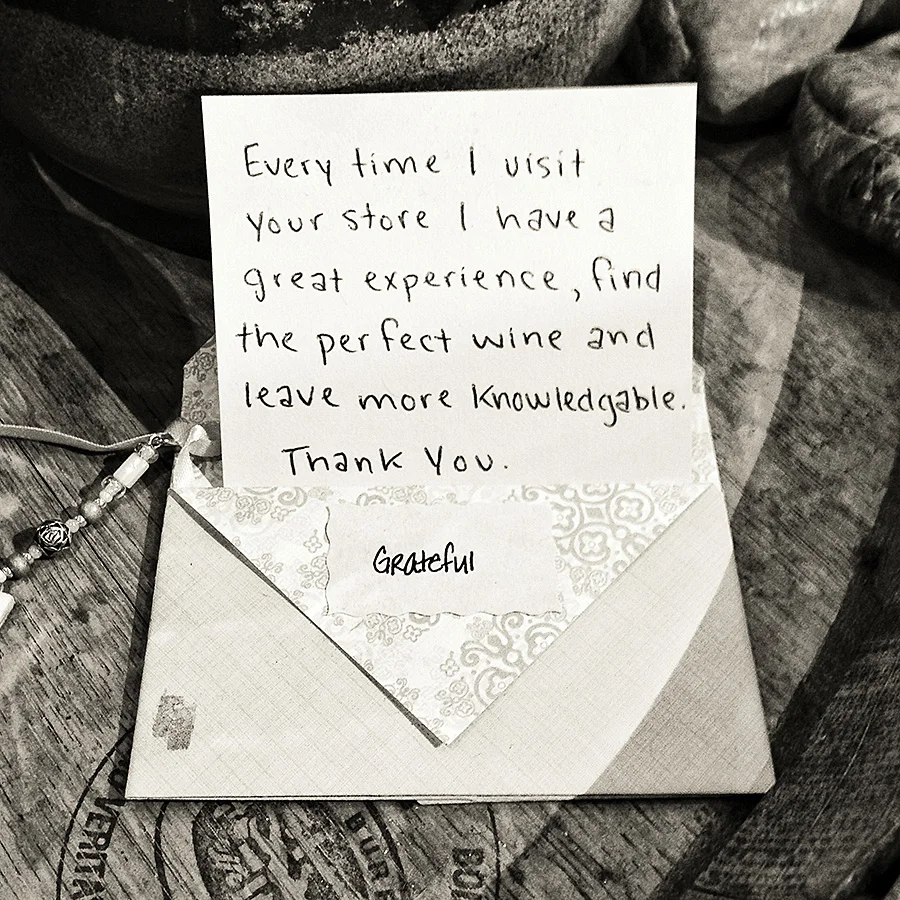 Every time I visit
your store I have a
great experience, find
the perfect wine and
leave more knowledgable.
Thank You.
Grateful